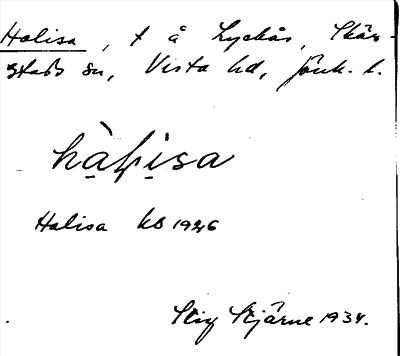 Halisa, t å Lyckås, Skär-
stads sn, Vista hd, Jönk. l.
hàl̥i̥sa
Halisa kb 1926
Stig Stjärne 1934.